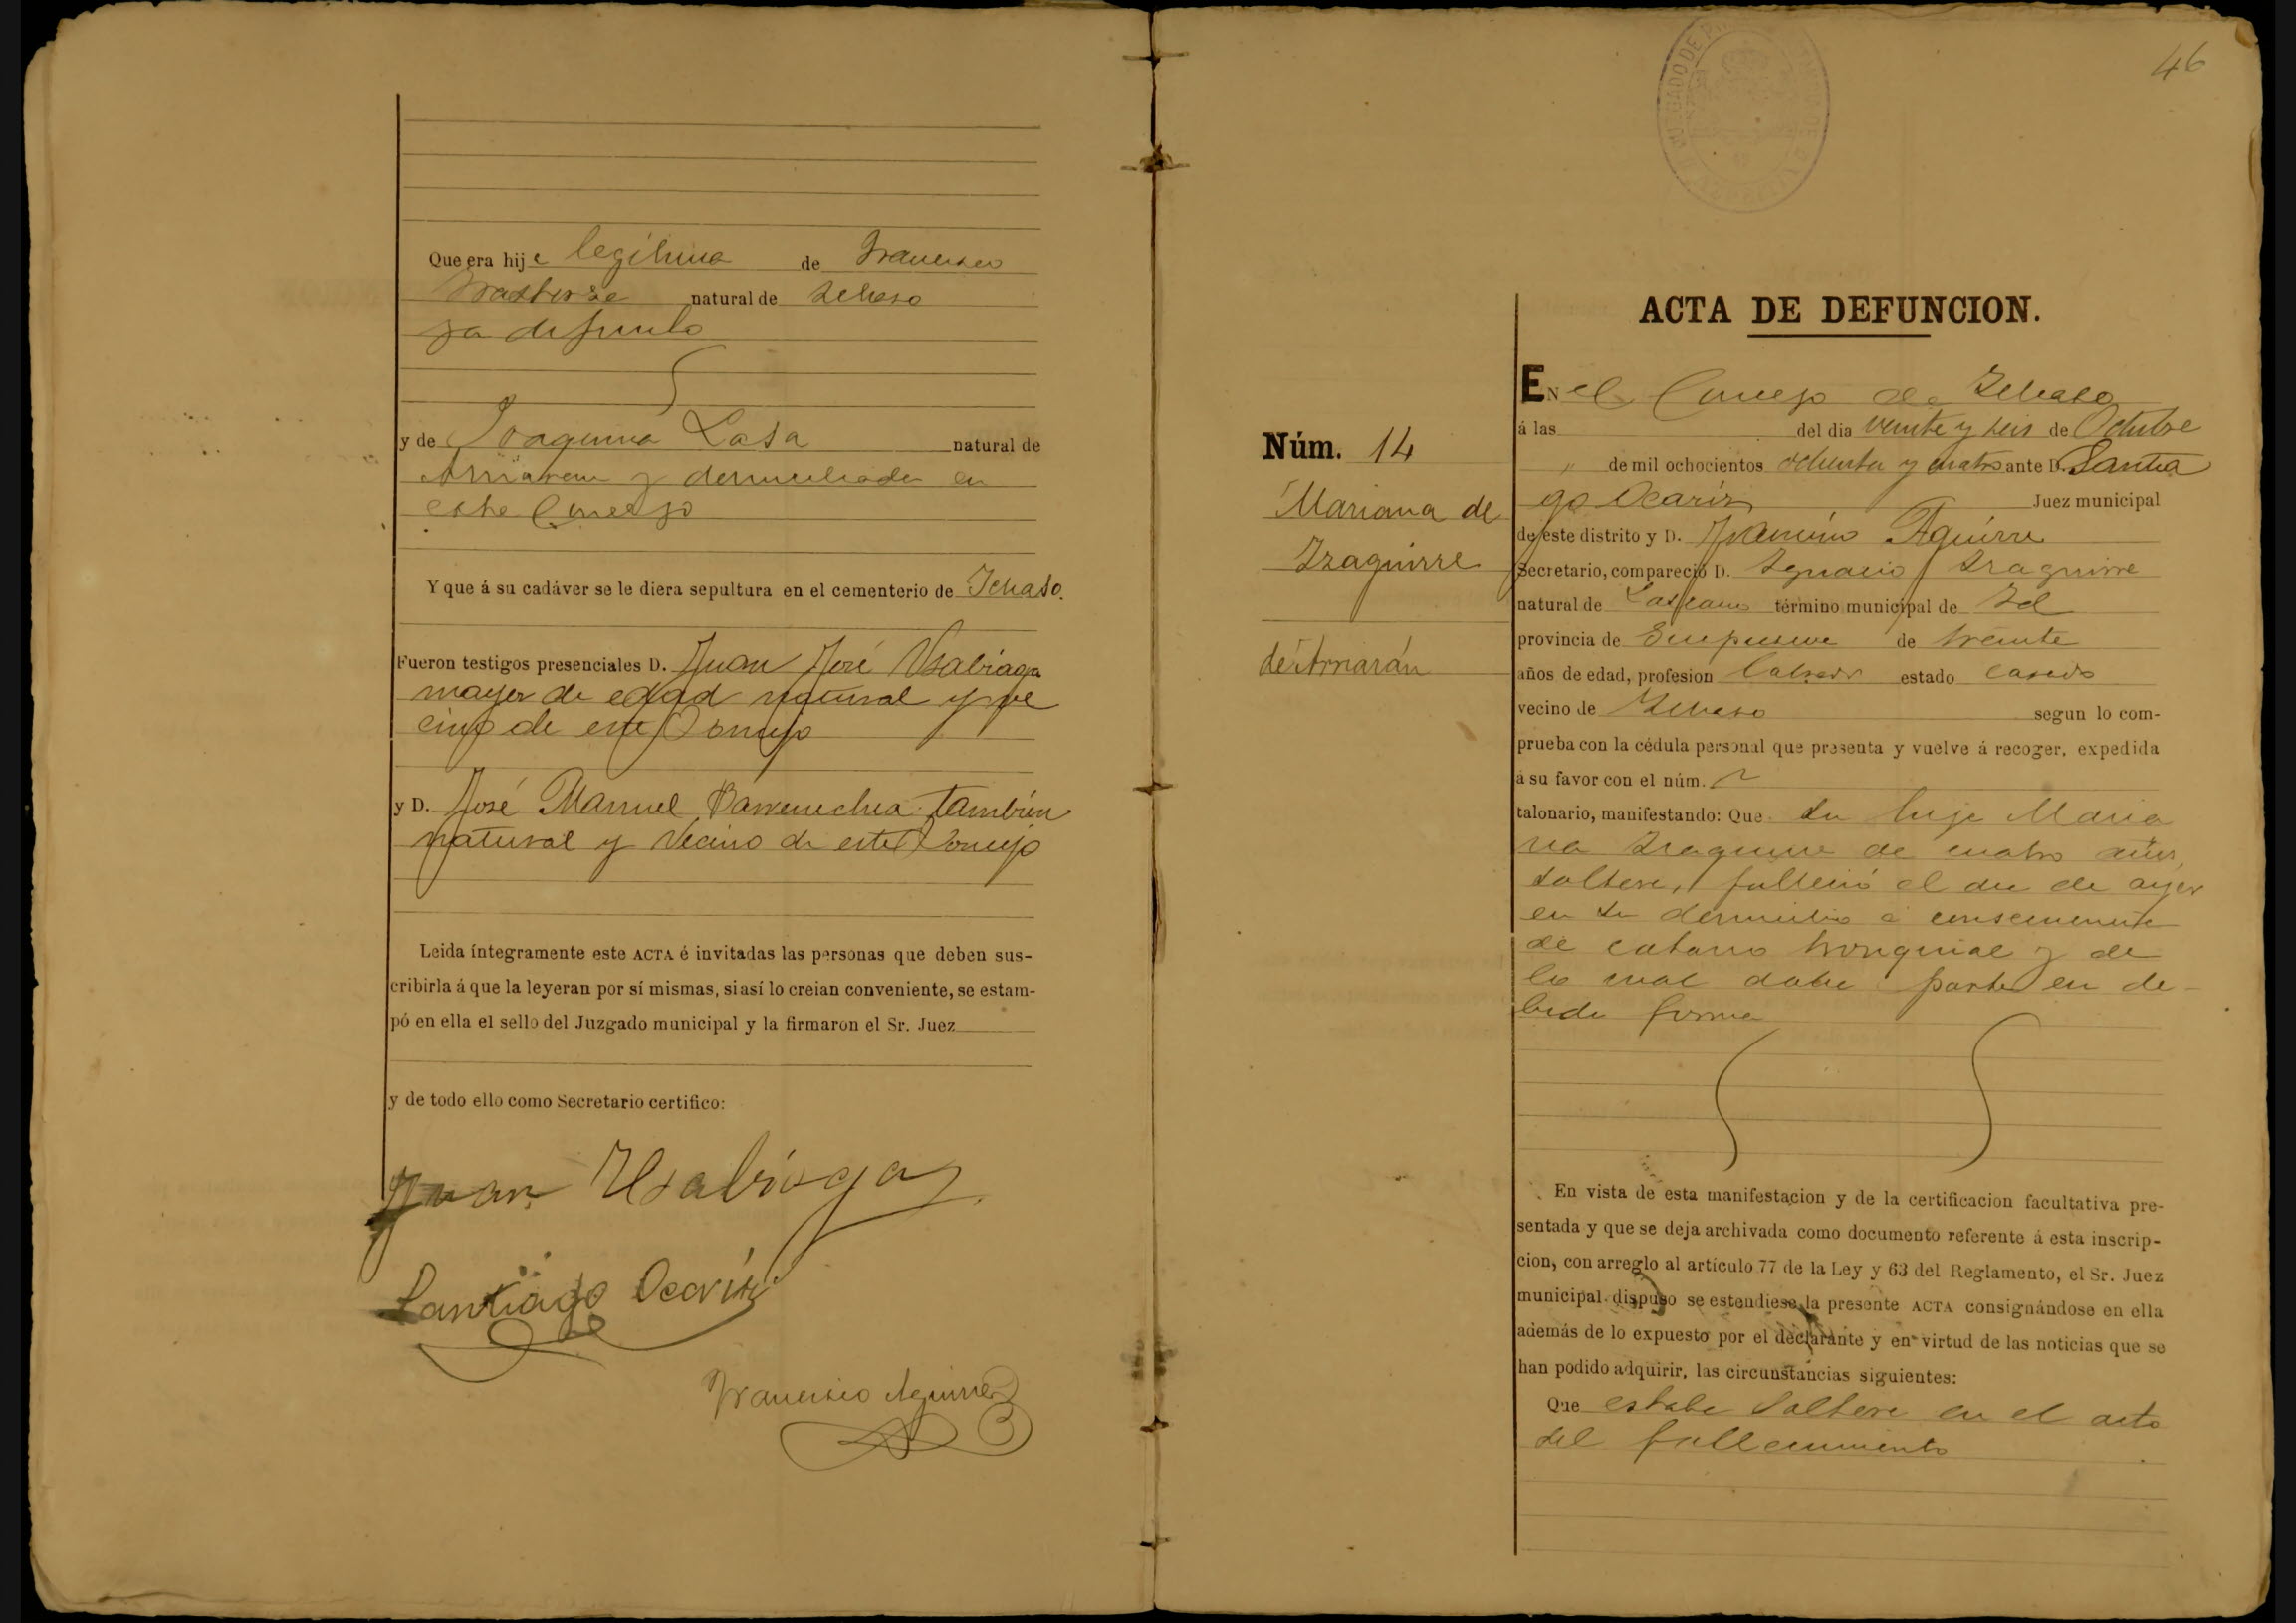 Que era hija legítima de Francisco
natural de Ichaso
ya difunto
y de Joaquina Lasa natural de
Arriaran y domiciliada en
este Concejo
Y que á su cadáver se le diera sepultura en el cementerio de Ichaso.
Fueron testigos presenciales D. Juan José Usabiaga
mayor de edad natural y ve
cino de este Concejo
y D. José Manuel Barrenechea también
natural y vecino de este Concejo
Leida íntegramente este ACTA é invitadas las personas que deben sus-
cribirla á que la leyeran por sí mismas, si así lo creian conveniente, se estam-
pó en ella el sello del Juzgado municipal y la firmaron el Sr. Juez
y de todo ello como Secretario certifico:
Juan Usabiaga
Santiago Ocariz
Francisco Aguirre
46
ACTA DE DEFUNCION.
Núm. 14
Mariana de
Izaguirre
de Arriarán
EN el Concejo de Ichaso
á las del dia veinte y seis de Octubre
" de mil ochocientos ochenta y cuatro ante D. Santia
go Ocariz Juez municipal
de este distrito y D. Francisco Aguirre
Secretario, compareció D. Ignacio Izaguirre
natural de Lazcano término municipal de Id
provincia de Guipuzcoa de treinta
años de edad, profesion labrador estado casado
vecino de Ichaso segun lo com-
prueba con la cédula personal que presenta y vuelve á recoger, expedida
á su favor con el núm.
talonario, manifestando: Que su hija Maria
na Izaguirre de cuatro años,
soltera, falleció el dia de ayer
en su domicilio á consecuencia
de catarro bronquial y de
lo cual daba parte en de-
bida forma
En vista de esta manifestacion y de la certificacion facultativa pre-
sentada y que se deja archivada como documento referente á esta inscrip-
cion, con arreglo al artículo 77 de la Ley y 63 del Reglamento, el Sr. Juez
municipal dispuso se estendiese la presente ACTA consignándose en ella
además de lo expuesto por el declarante y en virtud de las noticias que se
han podido adquirir, las circunstancias siguientes:
Que estaba soltera en el acto
del fallecimiento